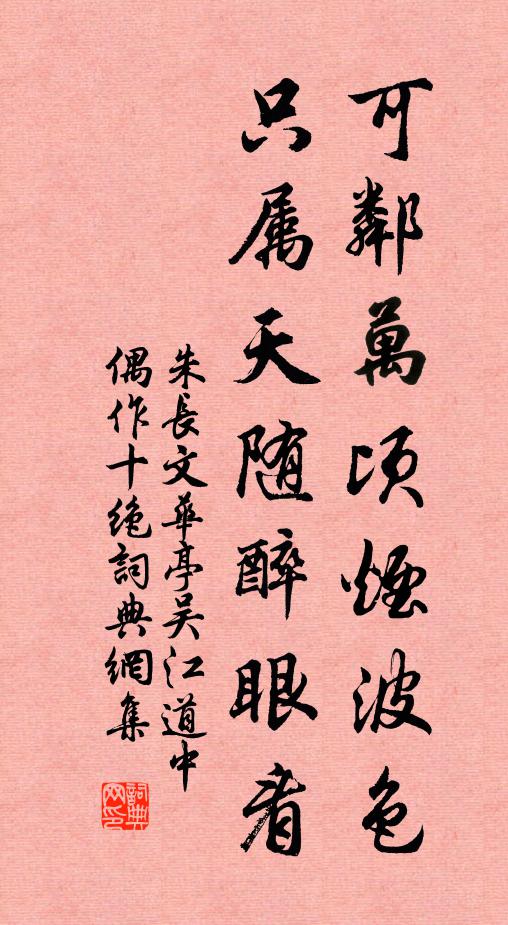 可鄰萬頃煙波色
只属天随醉眼看
朱長文華亭吴江道中
偶作十絶詞典網集
詞典
网印